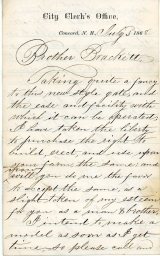 City Clerk's Office,
Concord, N. H., July 3 1868
Brother Brackett,
Taking quite a fancy
to this new style gate, and
the ease and facility with
which it can be operated,
I have taken the liberty
to purchase the right to
build, erect, and use upon
your farm the same; and
will you do me the favor
to accept the same, as a
slight token of my esteem
for you as a man & brother.
I intend to make a
model as soon as I get
time, so please call and